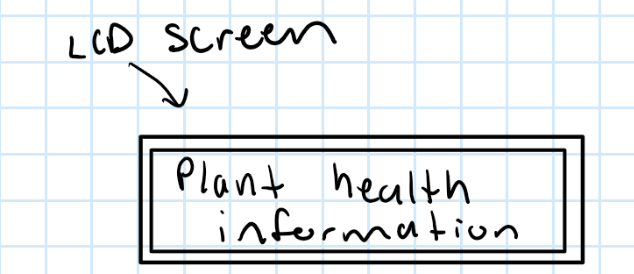 LCD screen
Plant health
information